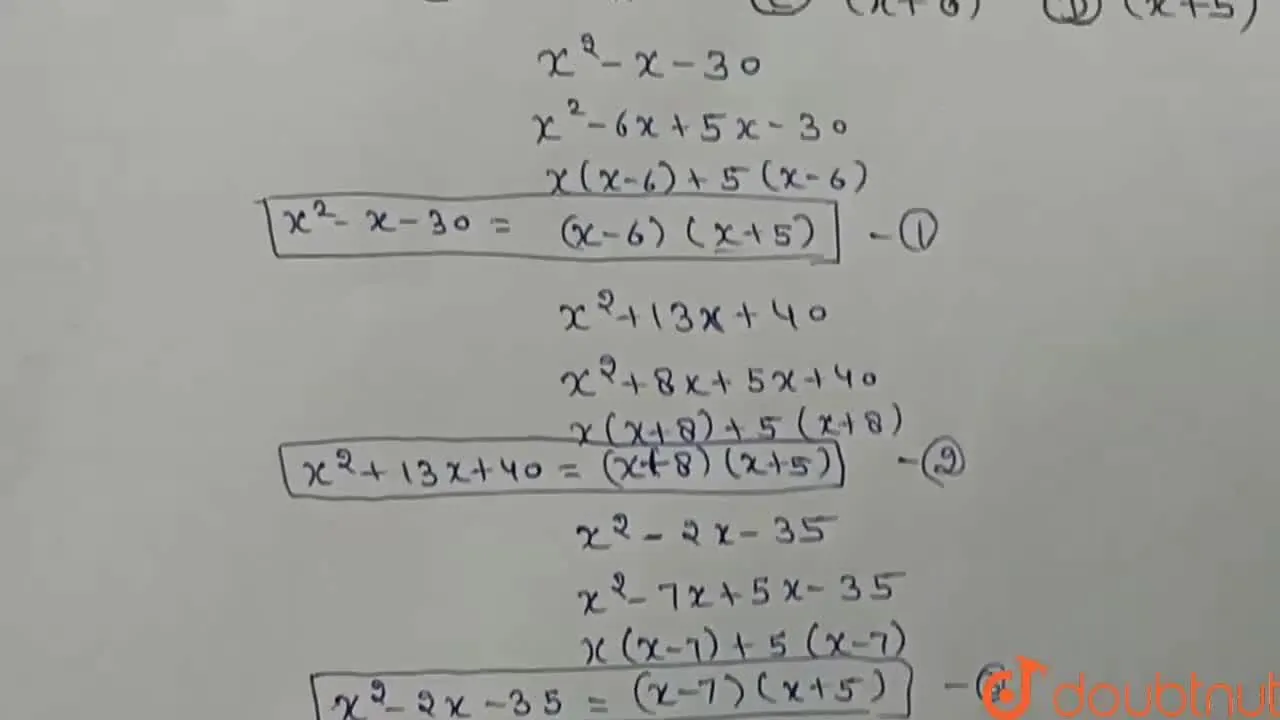 Ⓒ (x+6) Ⓓ (x+5)
x² - x - 30
x² - 6x + 5x - 30
x(x-6) + 5(x-6)
x² - x - 30 = (x-6)(x+5) - ①
x² + 13x + 40
x² + 8x + 5x + 40
x(x+8) + 5(x+8)
x² + 13x + 40 = (x+8)(x+5) - ②
x² - 2x - 35
x² - 7x + 5x - 35
x(x-7) + 5(x-7)
x² - 2x - 35 = (x-7)(x+5) -
doubtnut